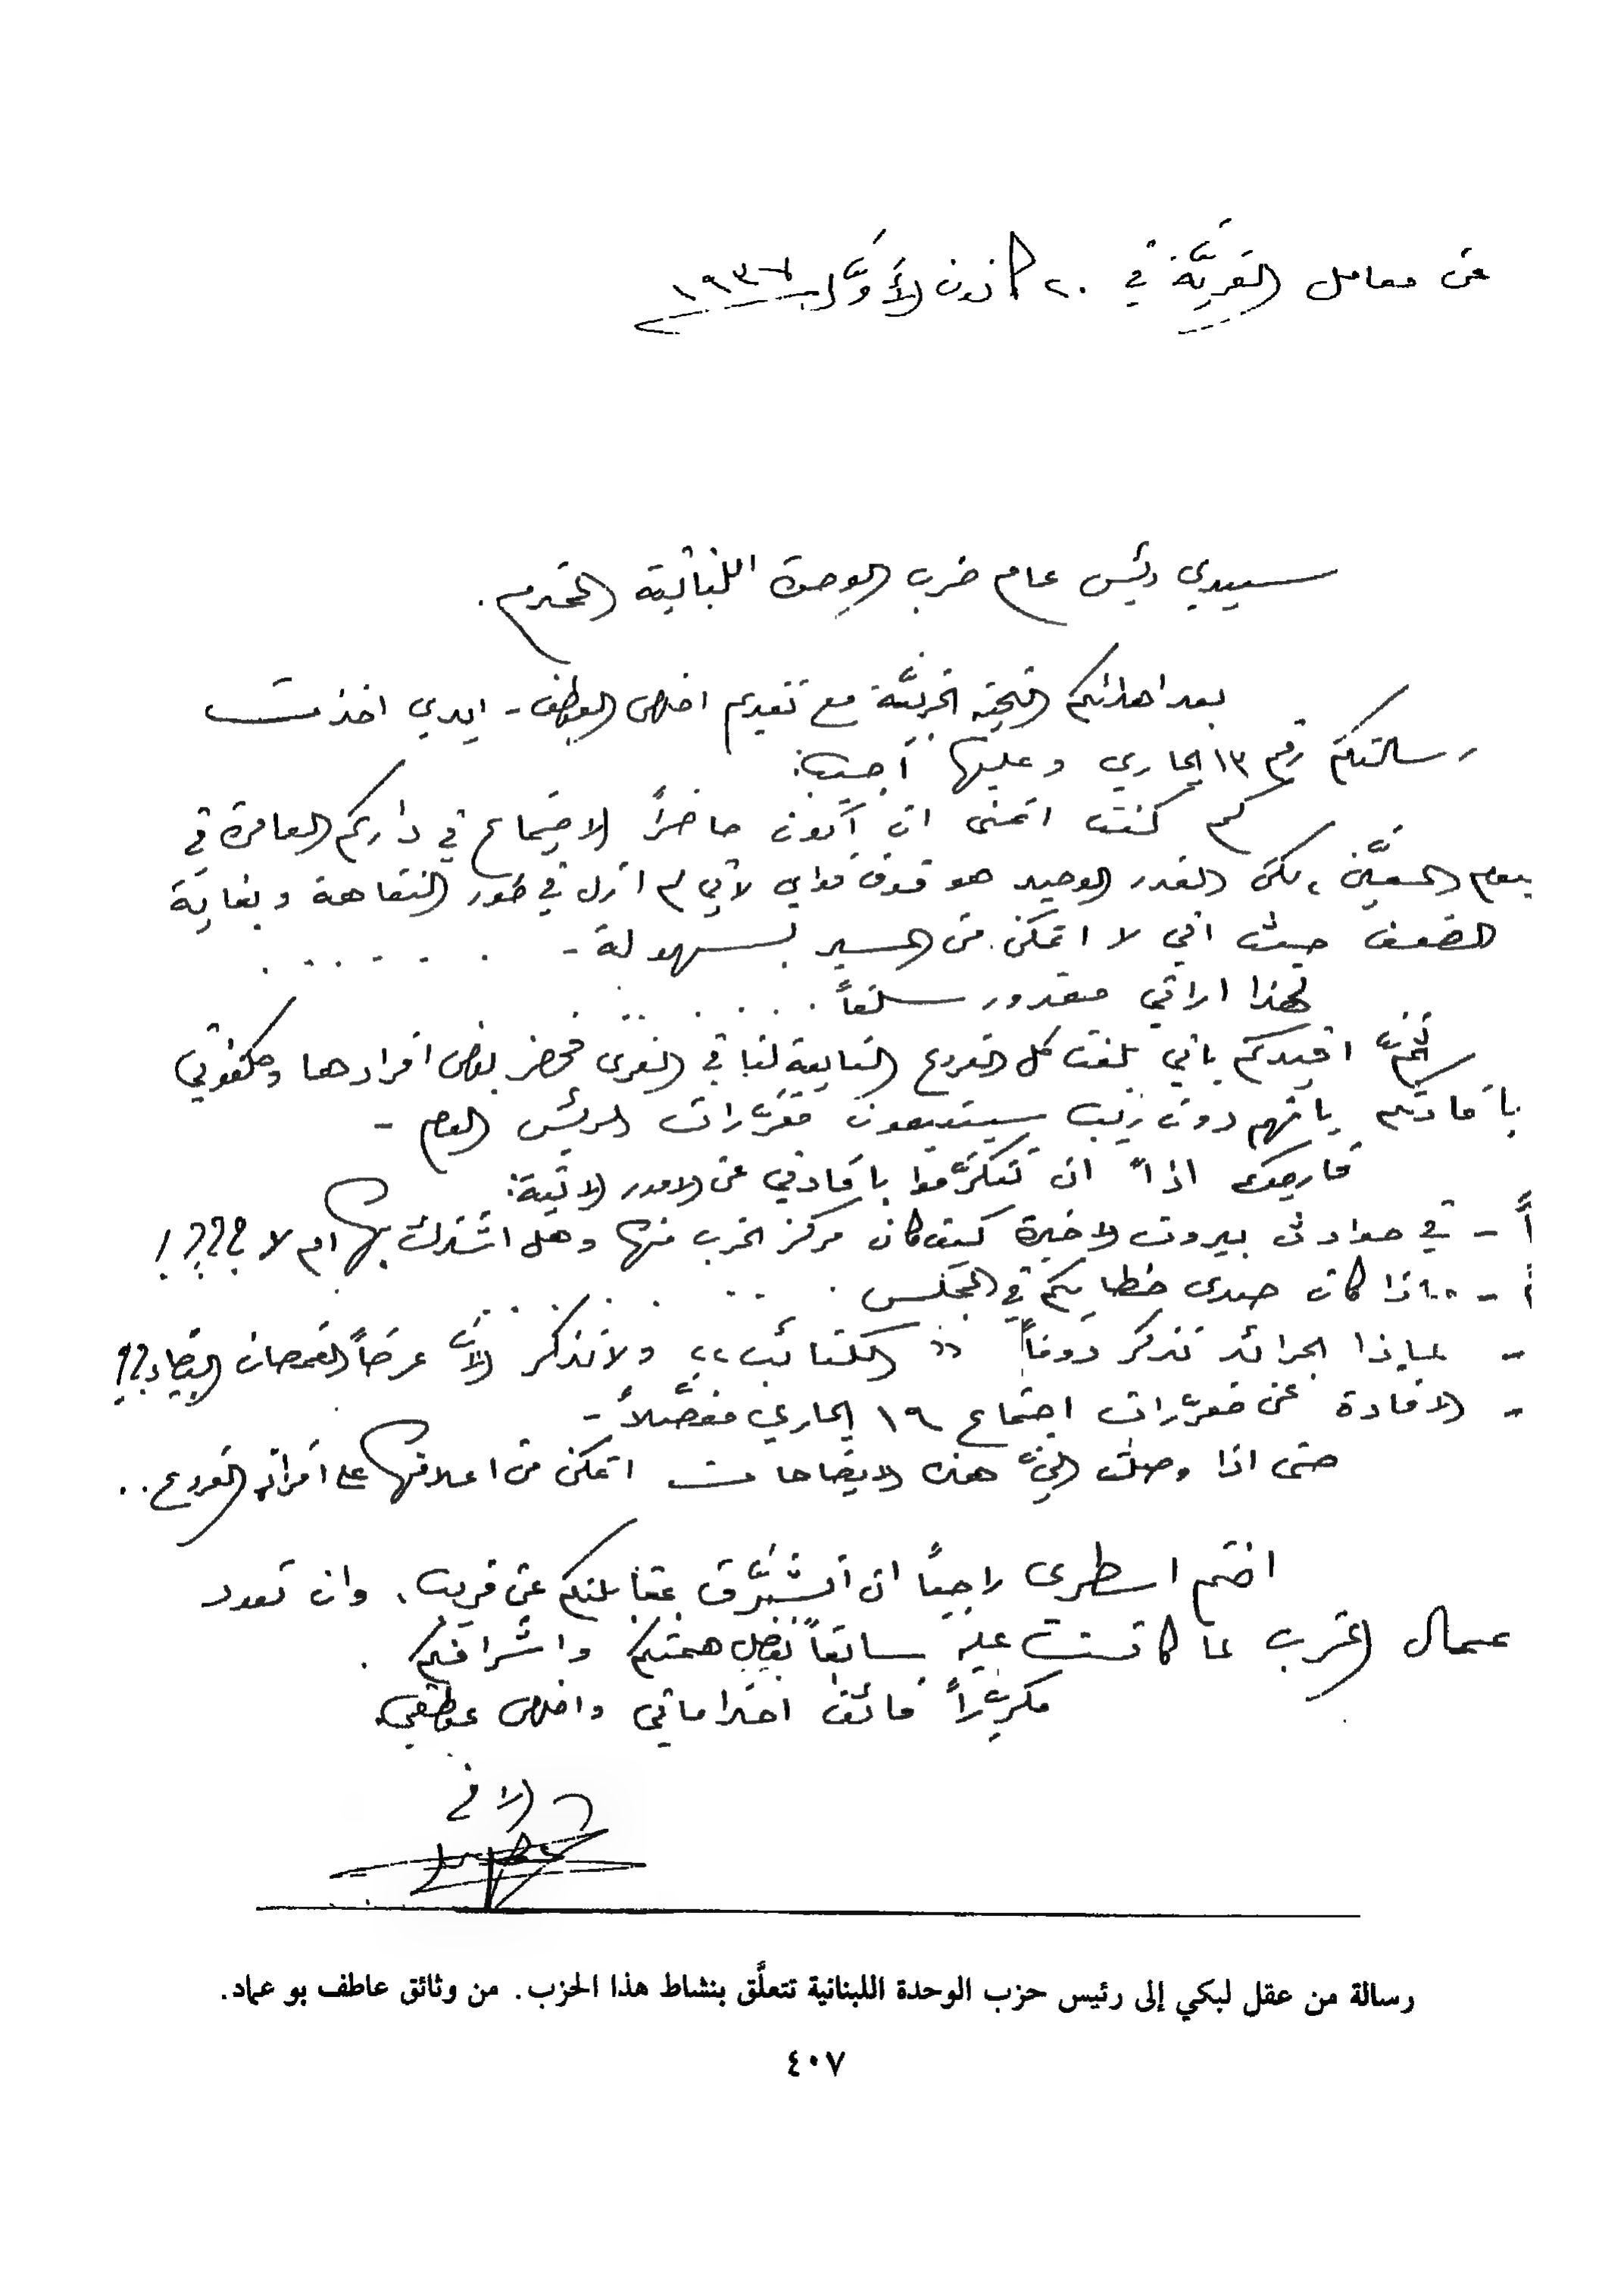 من معامل القريَّة في ٢٠ كانون الأوَّل ١٩٣٦
سيدي رئيس عام حزب الوحدة اللبنانية المحترم.
بعد اهدائكم التحية الحزبيَّة مع تقديم اخلص العواطف - ايدي اخذت
رسالتكم رقم ١٣ الجاري وعليها أجيب:
كم كنت اتمنى ان أكون حاضراً الاجتماع في داركم العامرة في
يوم المعيَّن، لكن العذر الوحيد هو فوق قواي لأني لم ازل في طور النقاهة وبغاية
الضعف حيث اني لا اتمكن من السير بسهولة - . . . . . .
لهذا اراني معذور سلفاً . . . . . .
ثمَّ افيدكم باني بلغت كل الفروع التابعة لنا في القرى فحضر بعض افرادها وكلفوني
بافادتكم بانهم دون ريب سيتبعون مقرّرات الرئيس العام -
فارجوك اذاً ان تتكرَّموا بافادتي عن الامور الاتية:
أً - في حوادث بيروت الاخيرة كيف كان مركز الحزب منها وهل اشترك بها ام لا ؟؟؟!
- ماذا كان صدى خطابكم في المجلس . . . . . . .
- لماذا الجرائد تذكر دوماً «الكتائب» ولا تذكر الآن عرضاً القمصان البيضاء؟؟
- الافادة عن مقرّرات اجتماع ١٩ الجاري مفصَّلاً -
حتى اذا وصلت اليَّ هذه الايضاحات اتمكن من اعلانها على افراد الفروع . .
اختم اسطري راجياً ان أتشرَّف بمقابلتكم عن قريب، وان تعود
عمال الحزب لما كانت عليه سابقاً بفضل همتكم واشرافكم .
مكرّراً فائق احتراماتي واخلص عواطفي.
الاخ
رسالة من عقل لبكي إلى رئيس حزب الوحدة اللبنانية تتعلَّق بنشاط هذا الحزب. من وثائق عاطف بو عماد.
٤٠٧